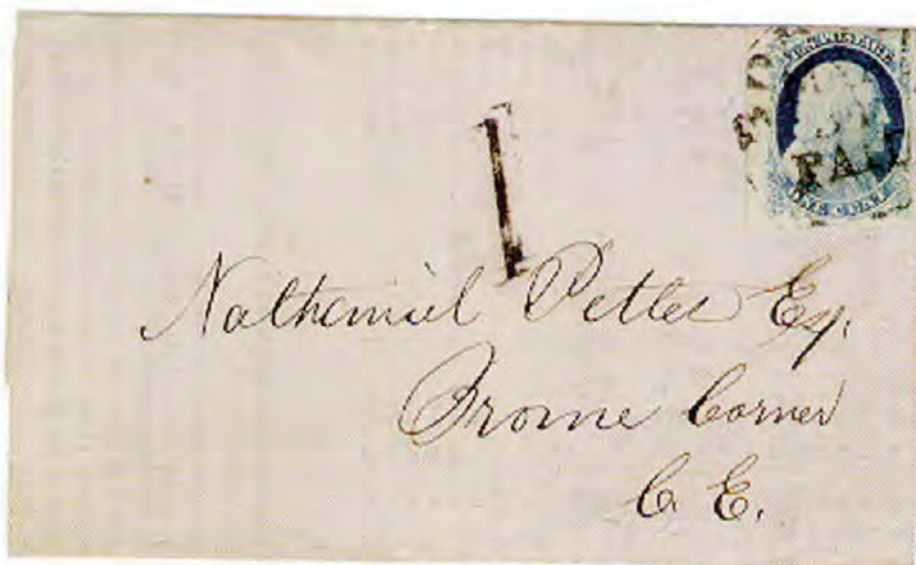 PAID
1
Nathaniel Pettes Esq.
Brome Corner
C. E.